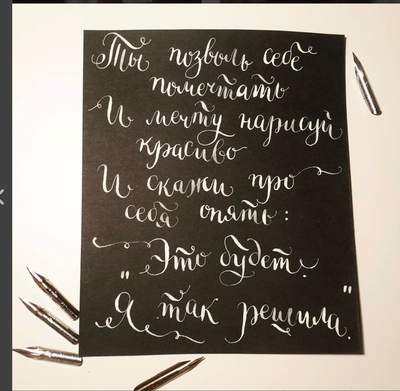 Ты позволь себе
помечтать
И мечту нарисуй
красиво
И скажи про
себя опять:
"Это будет.
Я так решила."